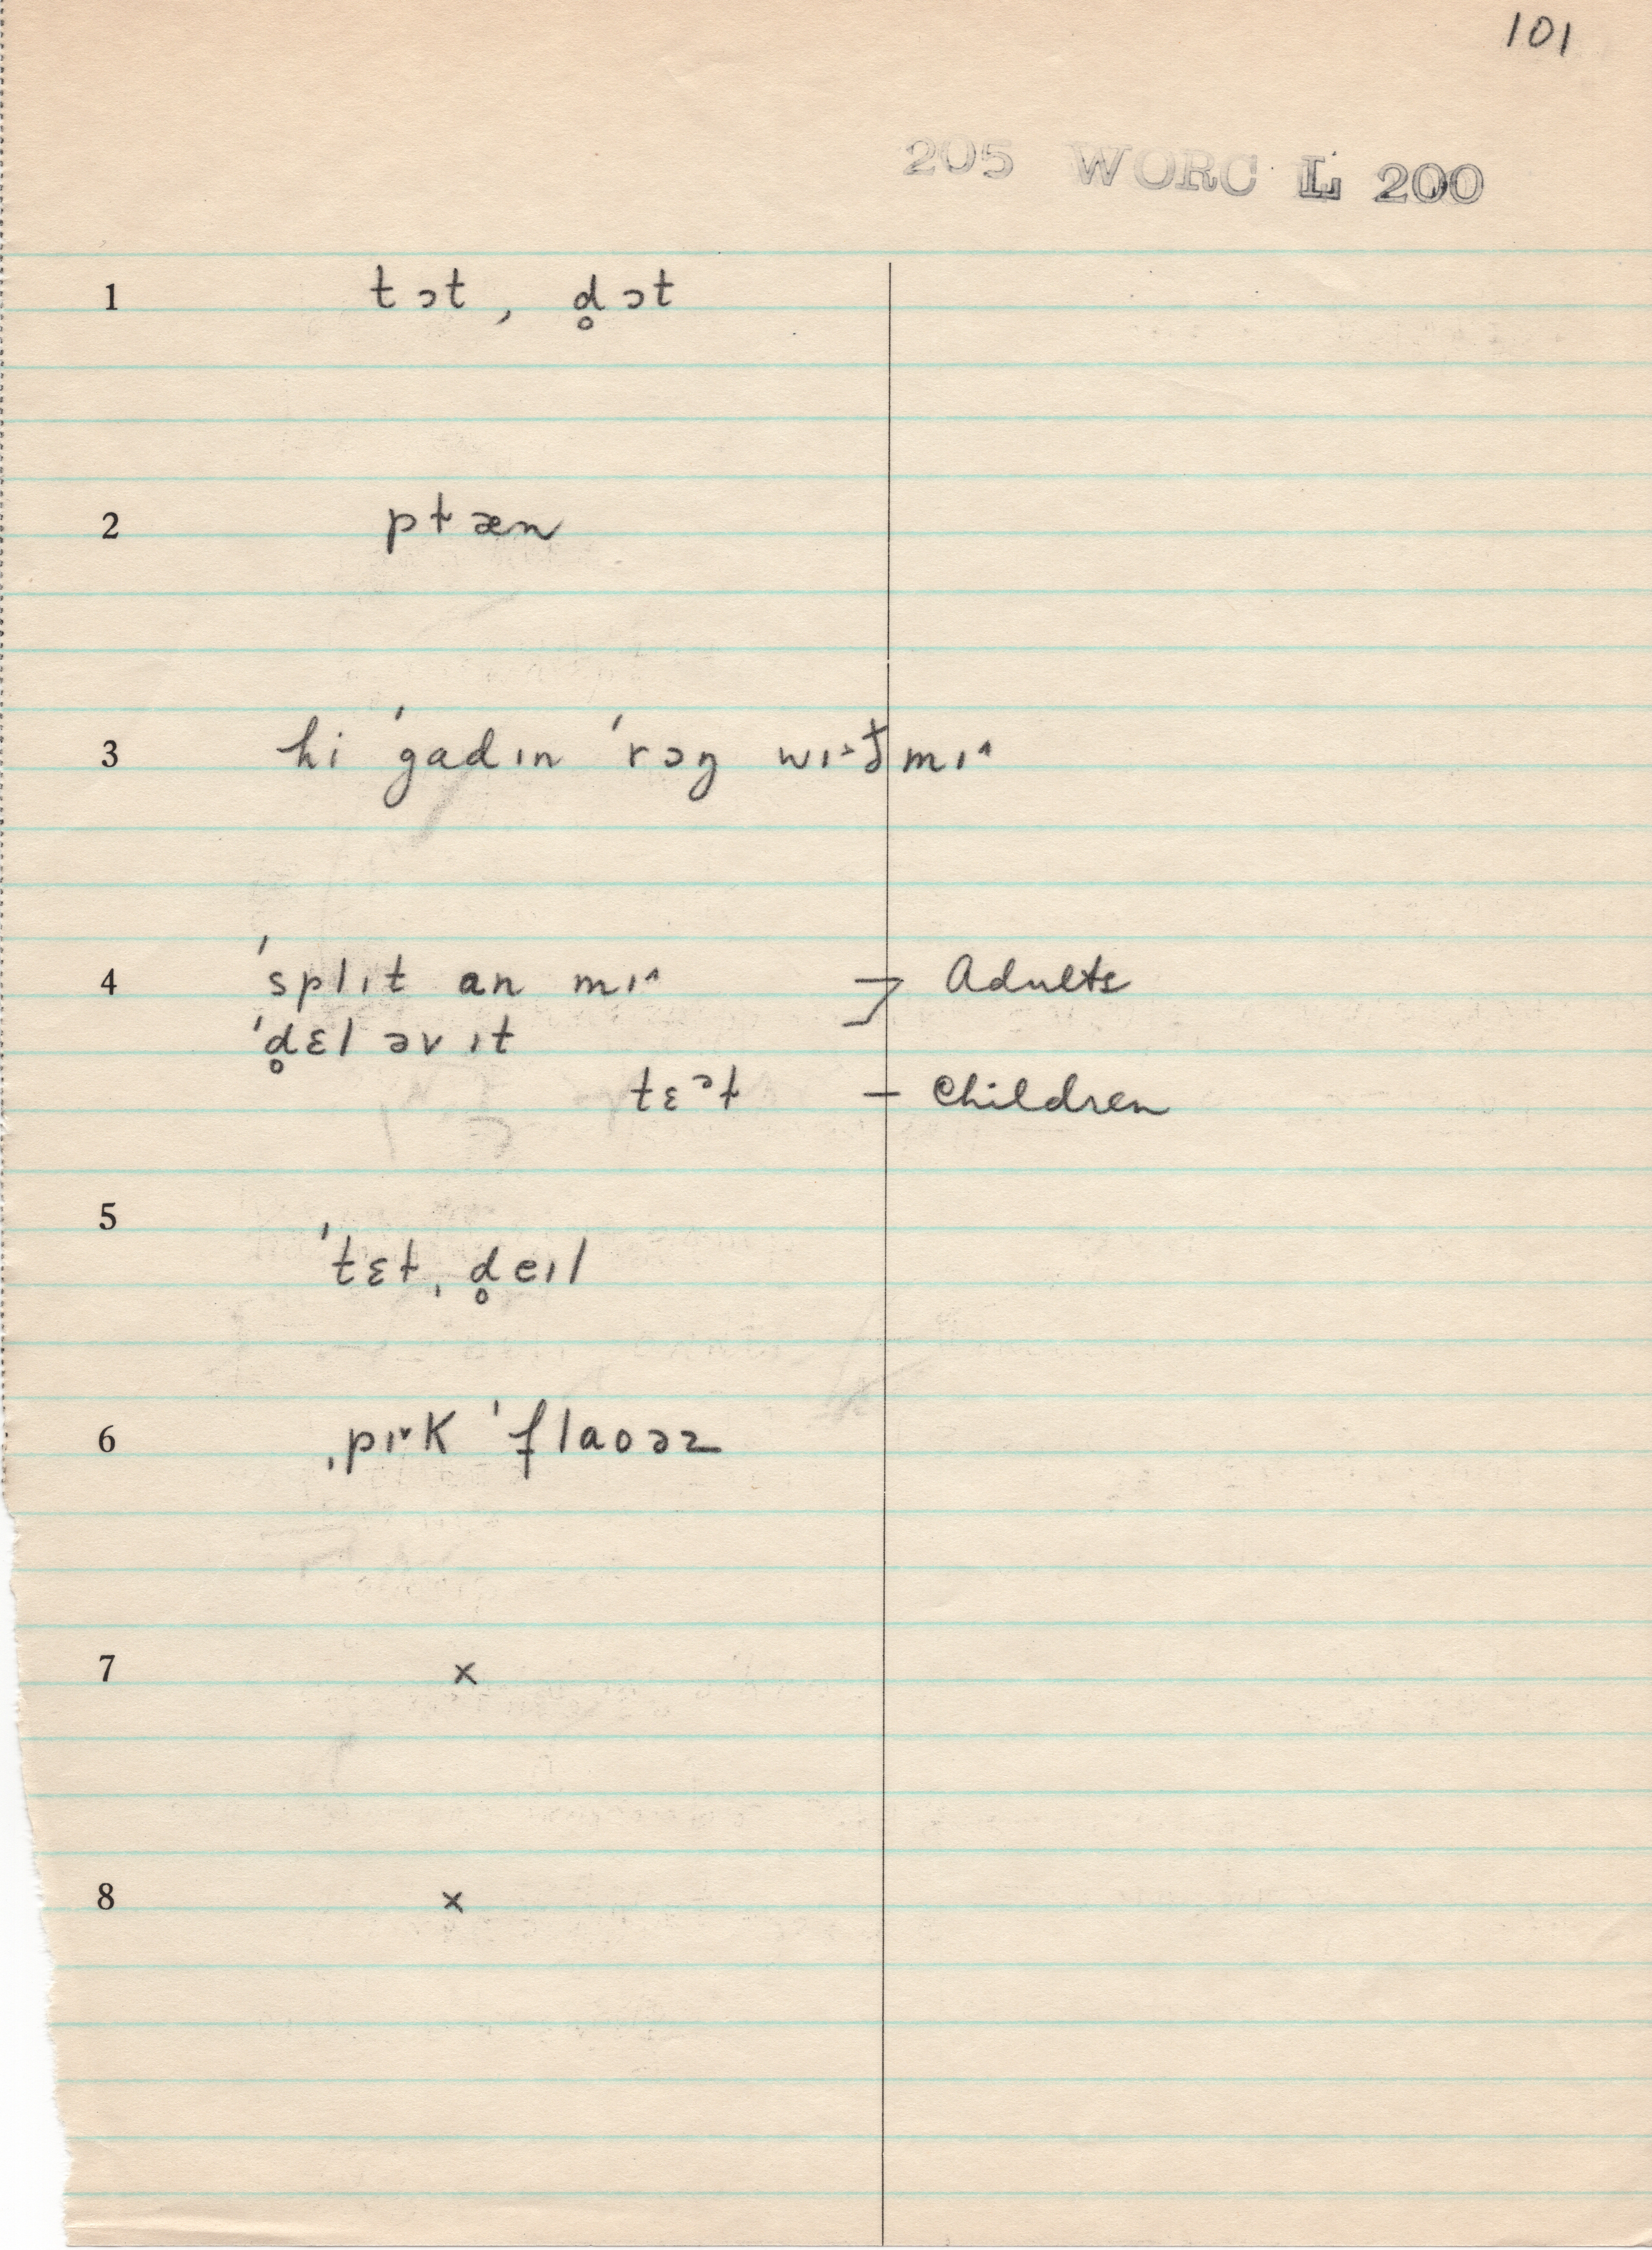 101
205 WORC L 200
1 tɔt, d̥ɔt
2 ptæn
3 hi ˈgadɪn ˈrɔŋ wɪ˔ðmɪ˄
4 ˈsplɪt an mɪ˄ Adults
ˈd̥ɛl əv ɪt
tɛᵊt – Children
5
ˈtɛt, d̥eɪl
6 ˌpɪ˅k ˈflaoəz
7 ×
8 ×